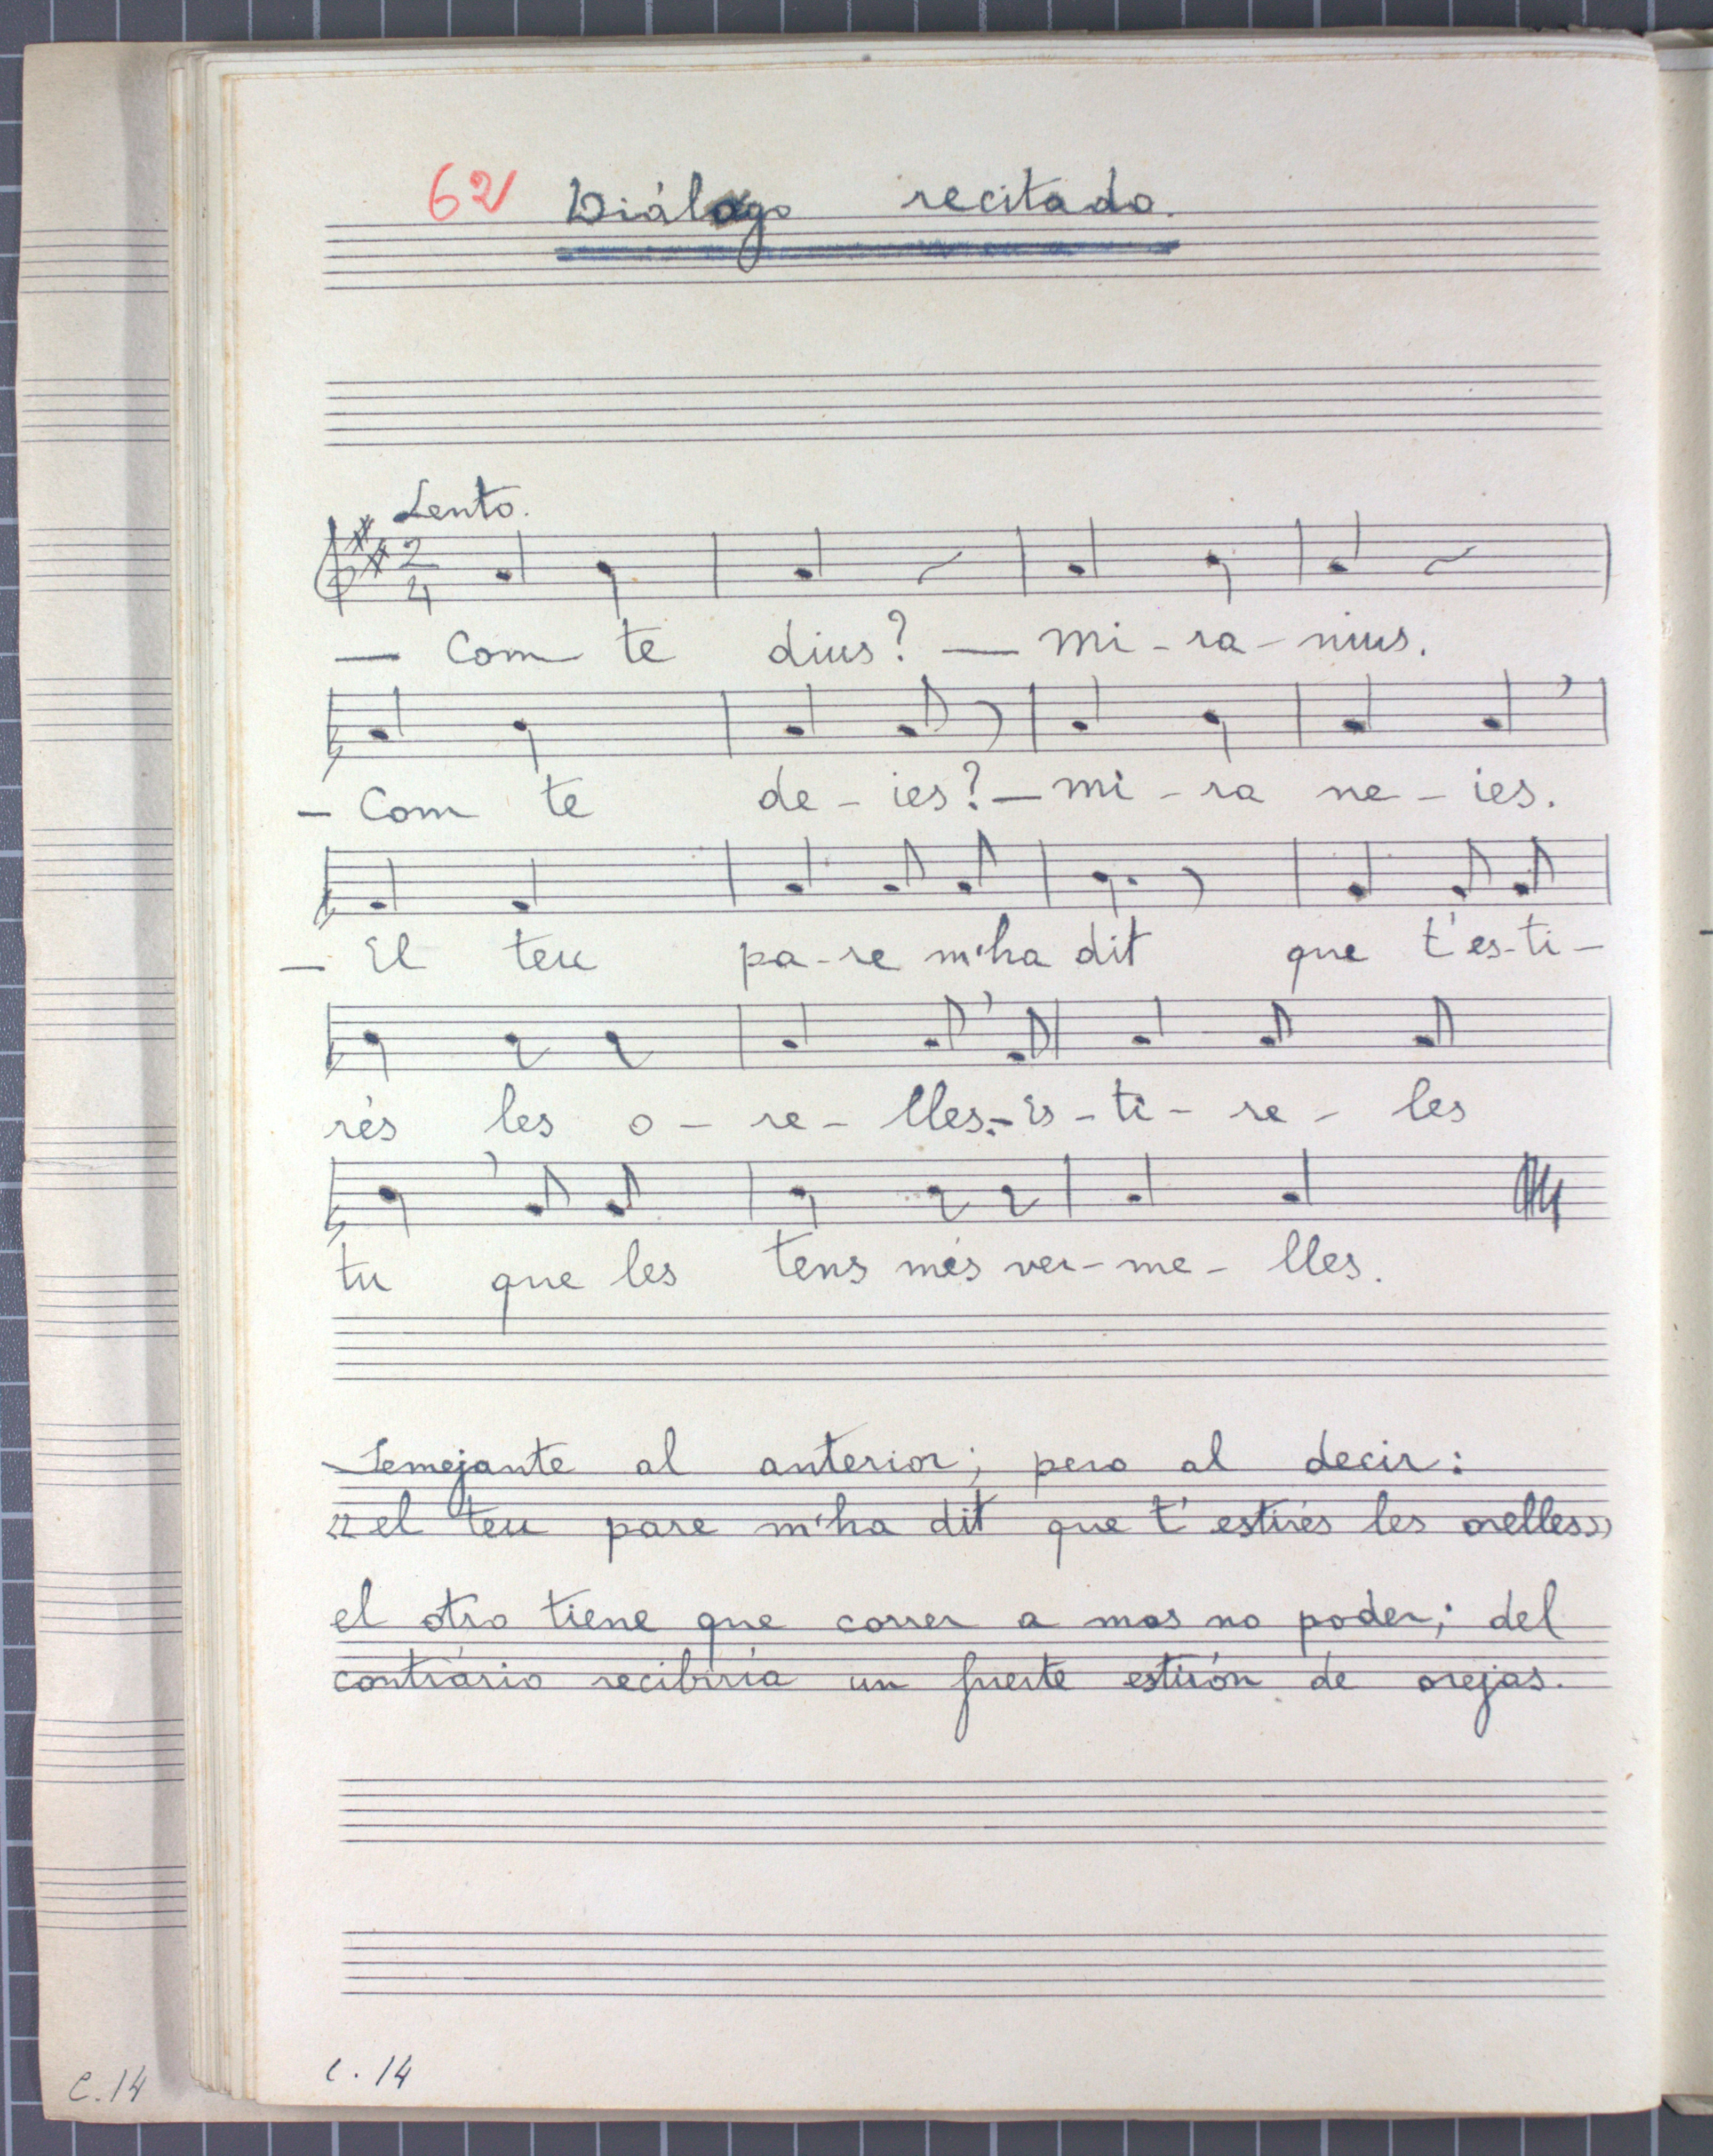 62 Diálogo recitado.
Lento.
2
4
— Com te dius? — Mi - ra - nius.
- Com te de - ies? — Mi - ra ne - ies.
- El teu pa - re m'ha dit que t'es - ti -
rés les o - re - lles. - Es - ti - re - les
tu que les tens més ver - me - lles.
Semejante al anterior; pero al decir:
«el teu pare m'ha dit que t'estirés les orelles»
el otro tiene que correr a mas no poder; del
contrário recibiría un fuerte estirón de orejas.
C. 14
C. 14